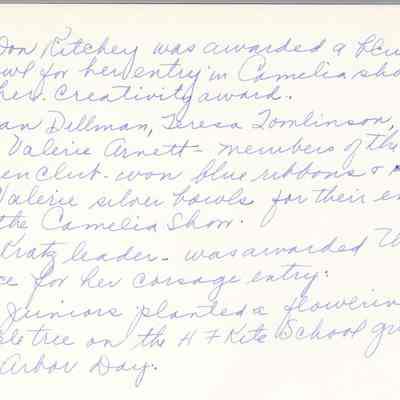 Don Kitchey was awarded a
owl for her entry in Camelia sho
her creativity award.
an Dillman, Teresa Tomlinson,
Valerie Arnett - members of the
en club - won blue ribbons &
Valerie silver bowls for their en
the Camelia Show.
Kratz leader - was awarded
ce for her corsage entry.
Juniors planted a flowerin
le tree on the H F Kite School gr
Arbor Day.